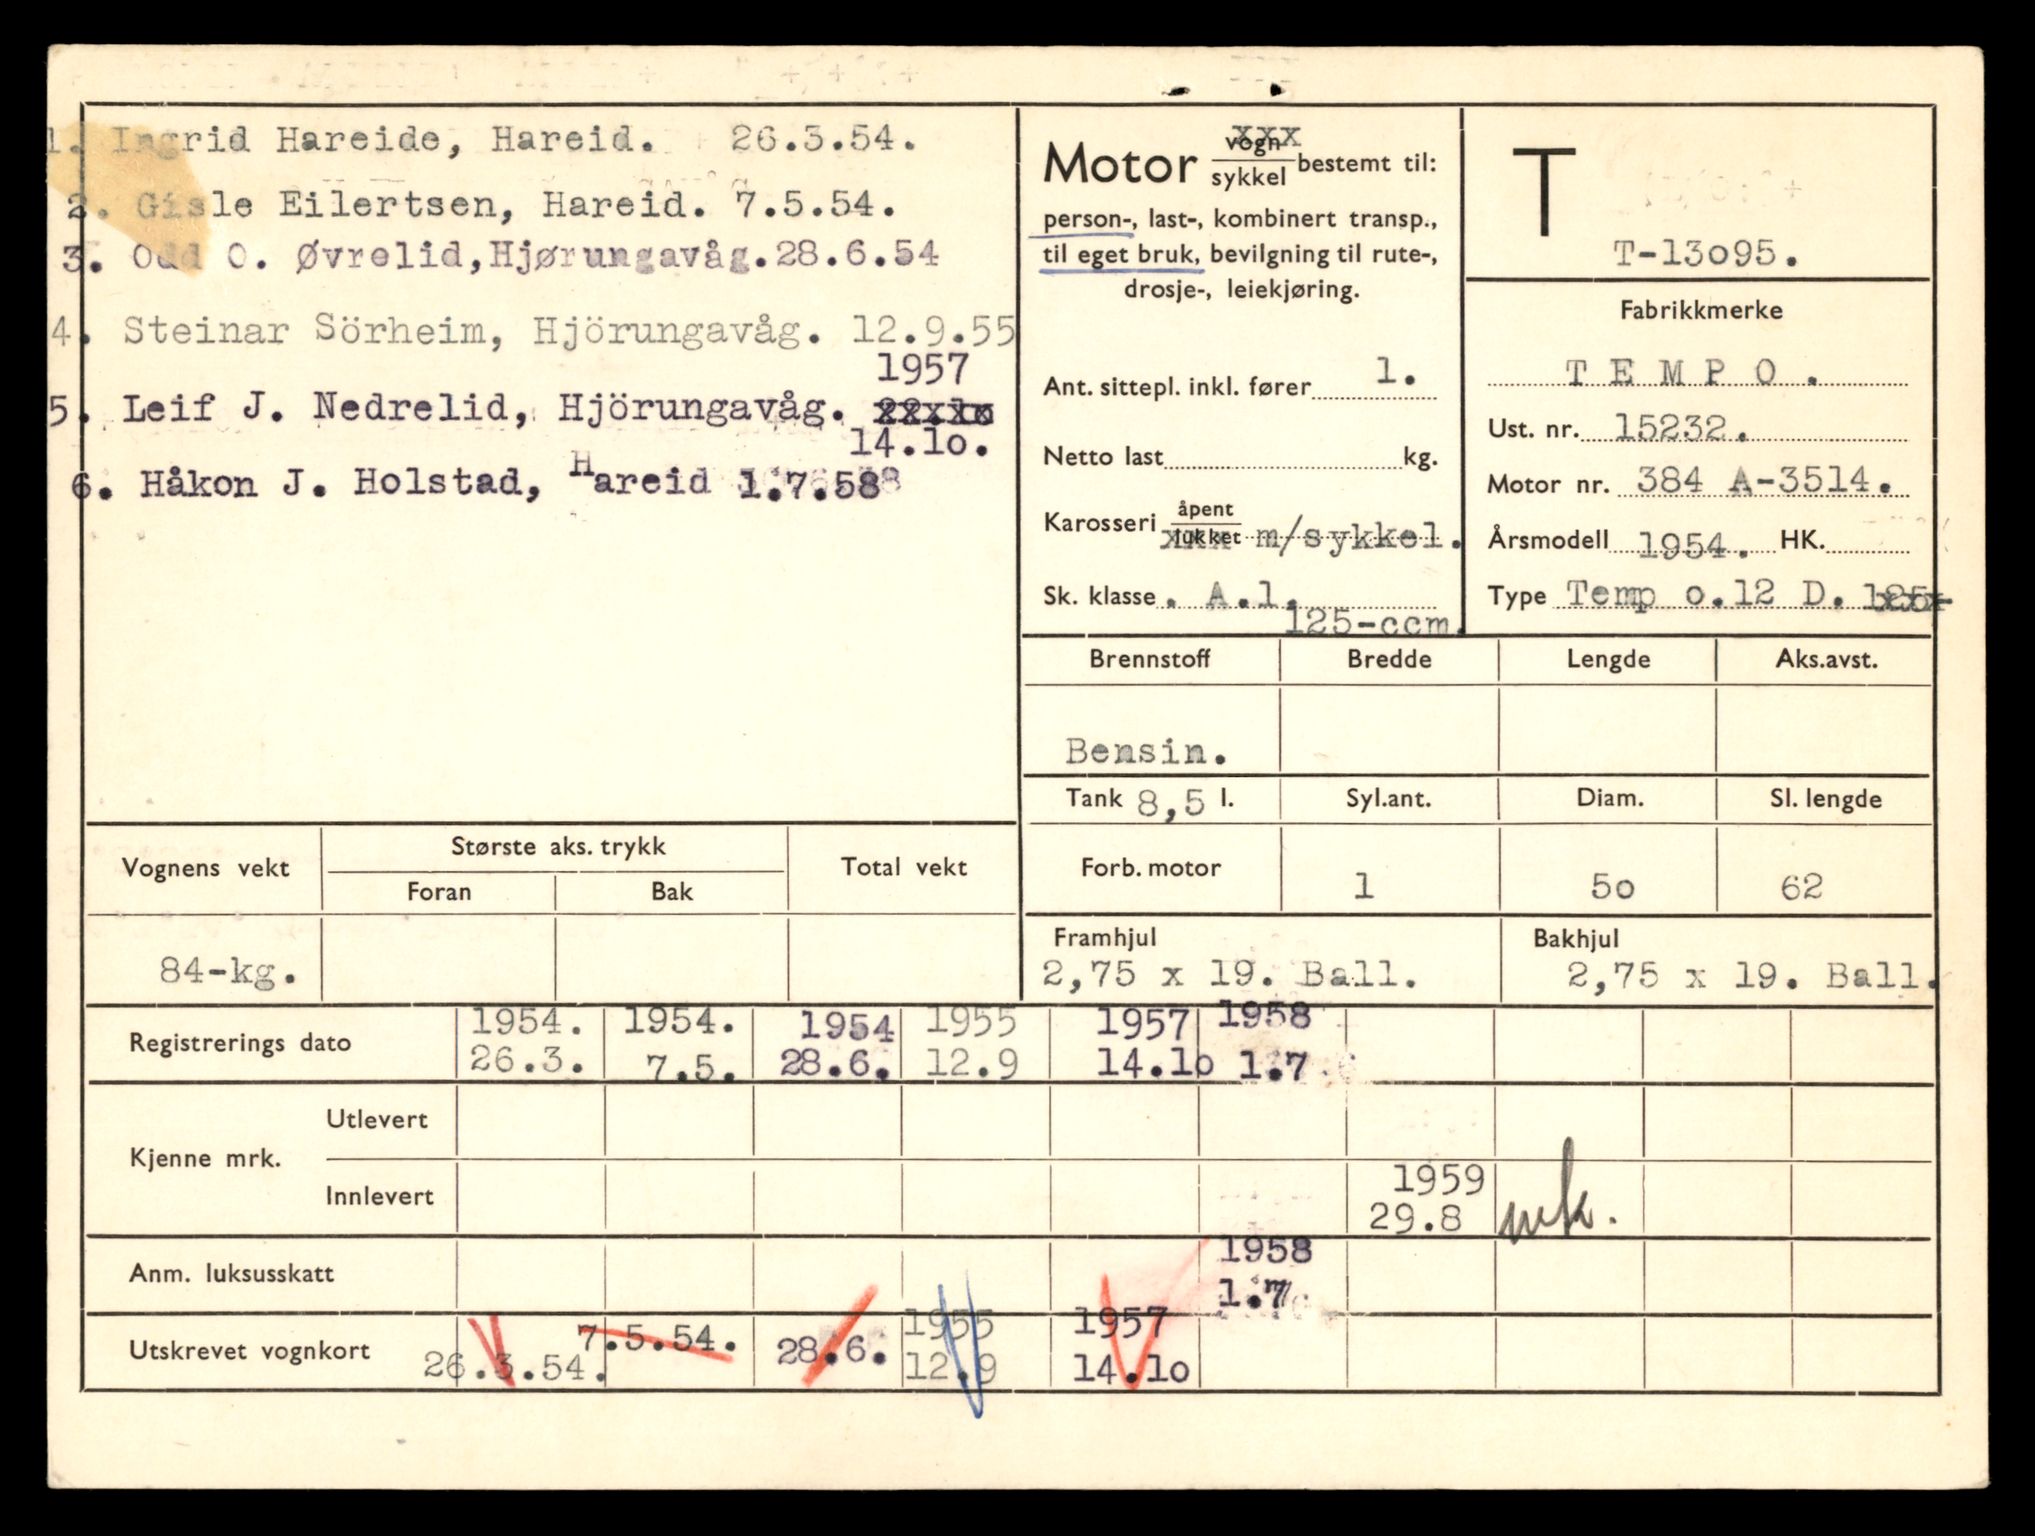 1. Ingrid Hareide, Hareid. 26.3.54.
2. Gisle Eilertsen, Hareid. 7.5.54.
3. Odd O. Øvrelid,Hjørungavåg.28.6.54
4. Steinar Sörheim, Hjörungavåg. 12.9.55
1957
5. Leif J. Nedrelid, Hjörungavåg.
14.1o.
6. Håkon J. Holstad, Hareid 1.7.58
Motor vogn/sykkel bestemt til:
person-, last-, kombinert transp.,
til eget bruk, bevilgning til rute-,
drosje-, leiekjøring.
Ant. sittepl. inkl. fører 1.
Netto last kg.
Karosseri åpent/lukket m/sykkel.
Sk. klasse . A.1.
125-ccm.
T
T-13o95.
Fabrikkmerke
T E M P O .
Ust. nr. 15232.
Motor nr. 384 A-3514.
Årsmodell 1954. HK.
Type Temp o.12 D. 125-
Brennstoff Bredde Lengde Aks.avst.
Bensin.
Tank 8,5 l. Syl.ant. Diam. Sl. lengde
Forb. motor 1 5o 62
Framhjul Bakhjul
2,75 x 19. Ball. 2,75 x 19. Ball.
Vognens vekt Største aks. trykk Total vekt
Foran Bak
84-kg.
1954. 1954. 1954 1955 1957 1958
Registrerings dato
26.3. 7.5. 28.6. 12.9 14.1o 1.7
Kjenne mrk.
Utlevert
Innlevert 1959
29.8 mk.
Anm. luksusskatt 1958
1.7
Utskrevet vognkort 26.3.54. 7.5.54. 28.6. 1955 1957
12.9 14.1o